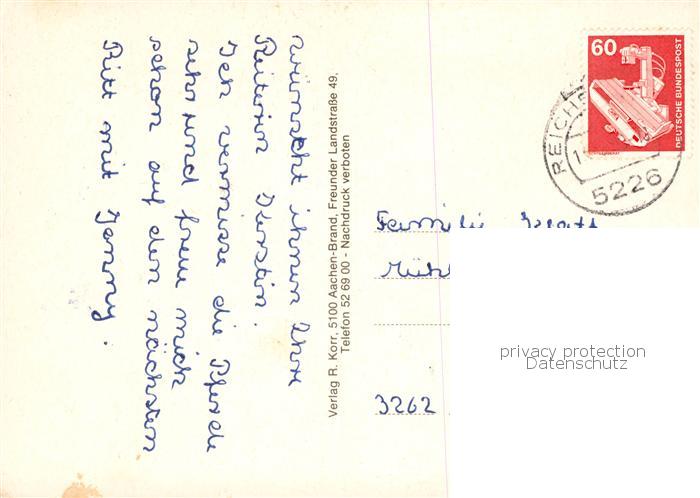 wünscht ihnen Ihre
Reiterin Kerstin.
Ich vermisse die Pferde
sehr und freue mich
schon auf den nächsten
Ritt mit Jonny.
Verlag R. Korr, 5100 Aachen-Brand, Freunder Landstraße 49,
Telefon 52 69 00 - Nachdruck verboten
60
DEUTSCHE BUNDESPOST
5226
Familie
3262
privacy protection
Datenschutz